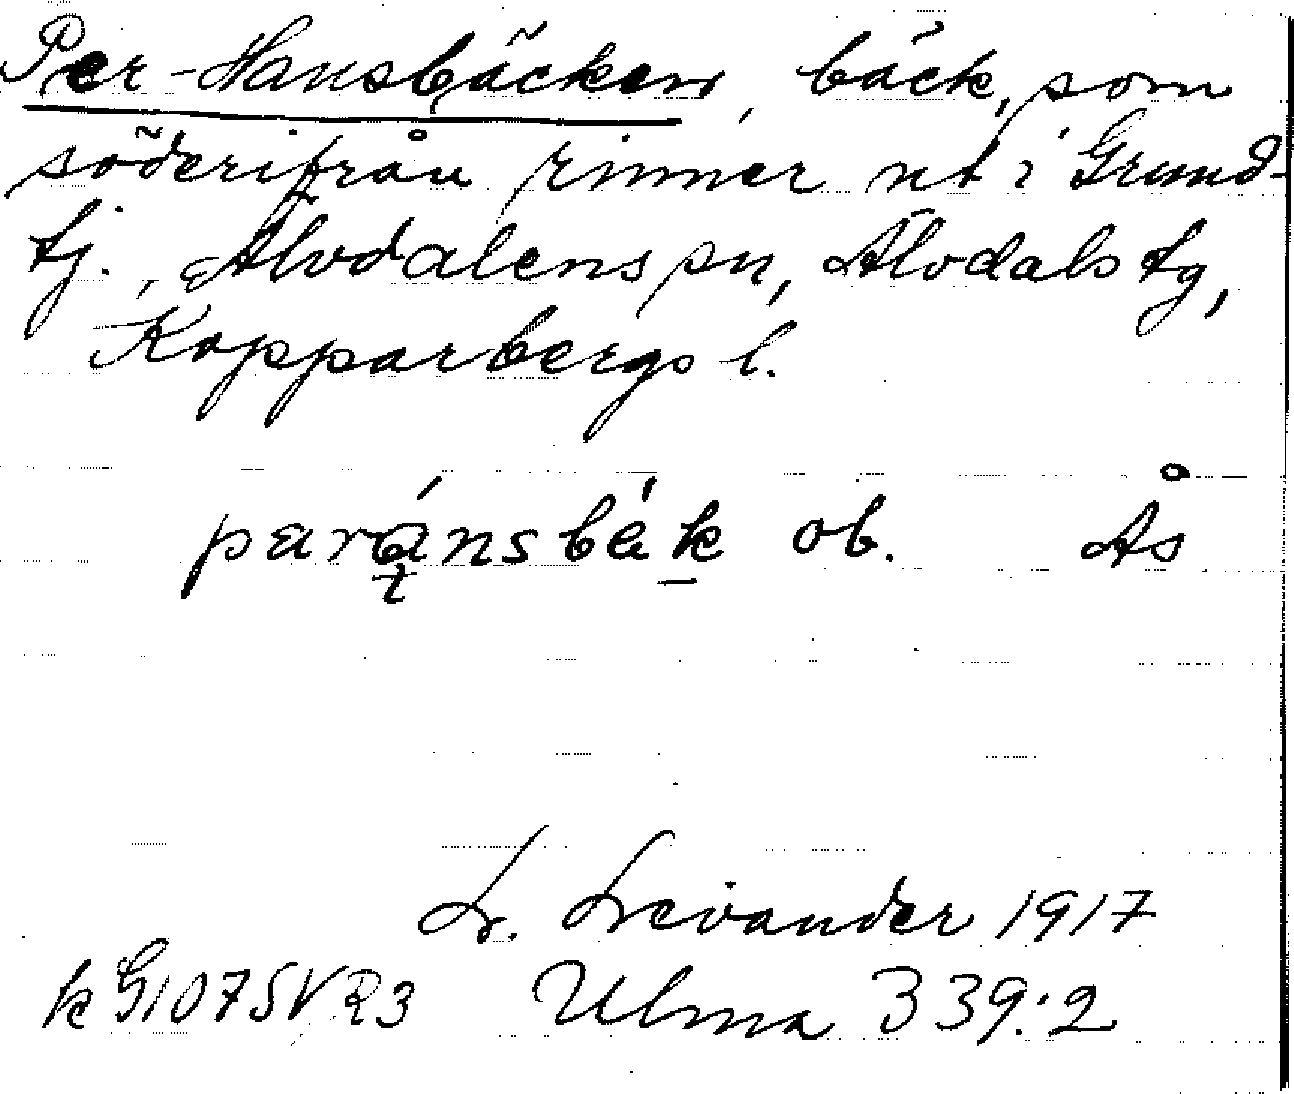 Per-Hansbäcken, bäck, som
söderifrån rinner ut i Grund-
tj., Älvdalens sn, Älvdals tg,
Kopparbergs l.
ob. Ås
L. Levander 1917
k G1075VR3 Ulma 339:2